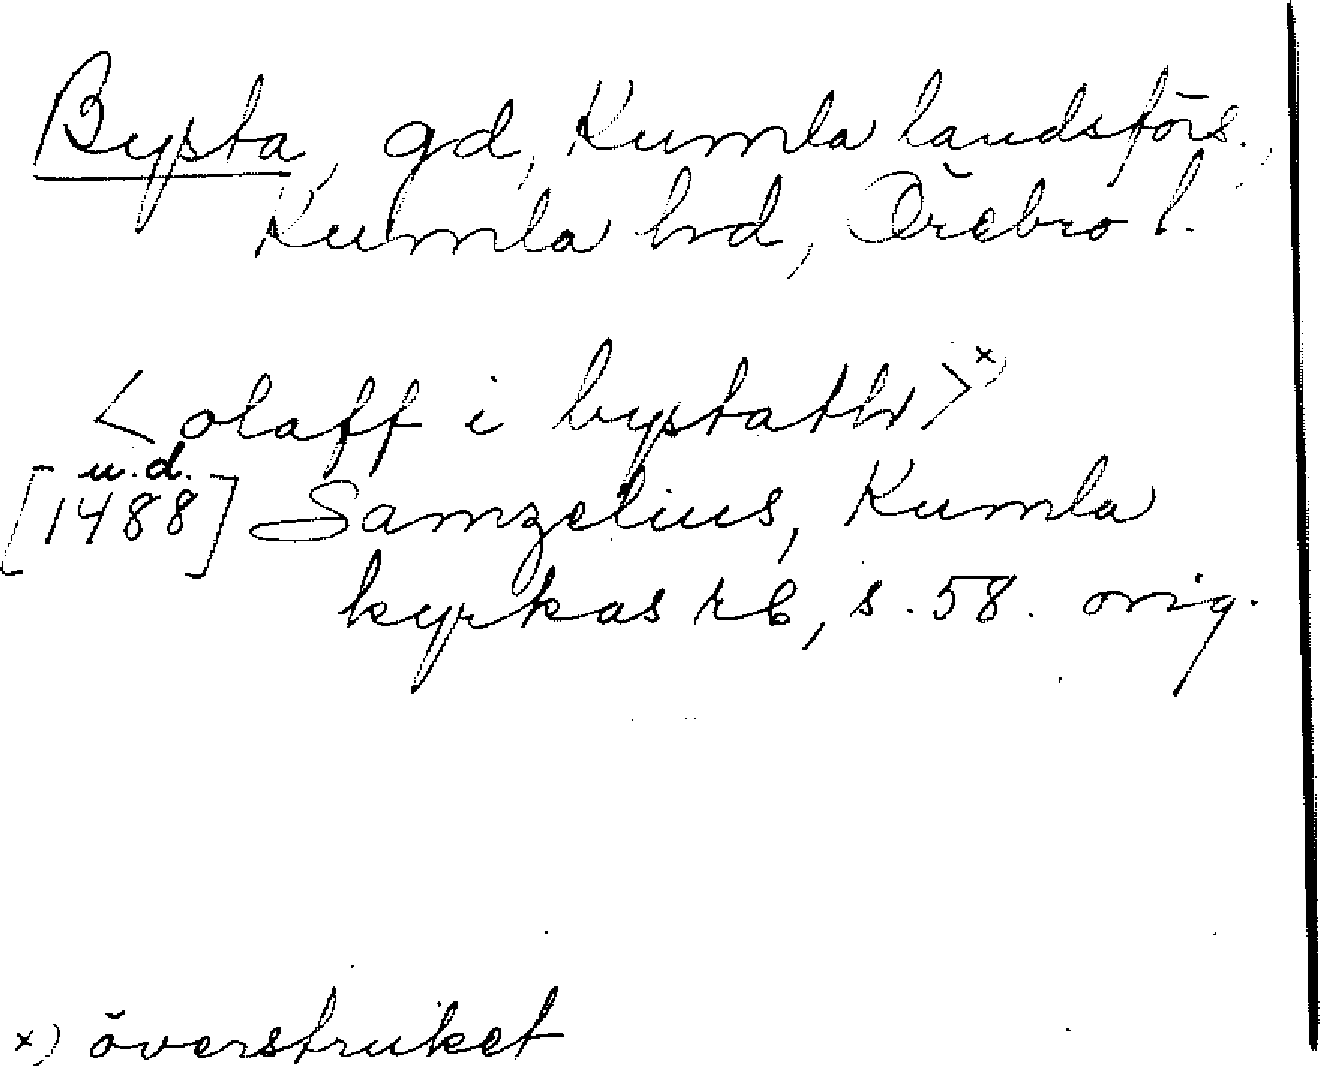 Bysta, gd, Kumla landsförs.,
Kumla hrd, Örebro l.
<olaff i bystathr>x)
u.d.
[1488] Samzelius, Kumla
kyrkas rb, s. 58. orig.
x) överstruket